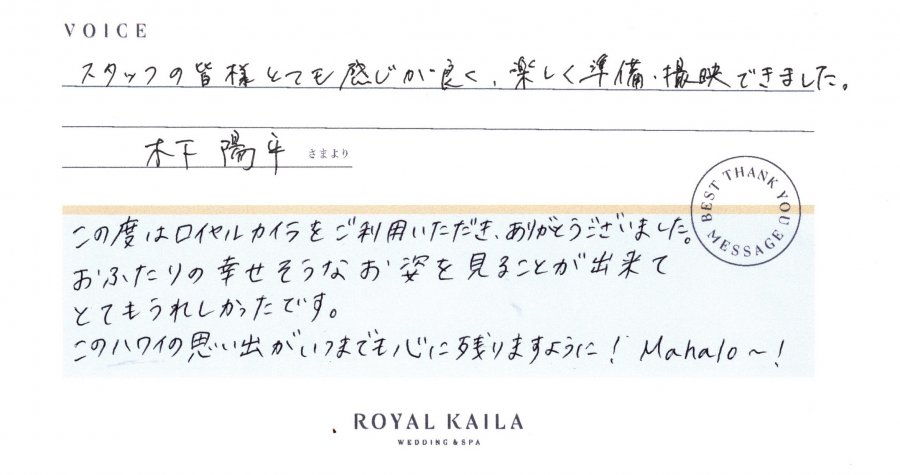 VOICE
スタッフの皆様とても感じが良く、楽しく準備・撮映できました。
木下 陽平 さまより
BEST THANK YOU MESSAGE
この度はロイヤルカイラをご利用いただき、ありがとうございました。
おふたりの幸せそうなお姿を見ることが出来て
とてもうれしかったです。
このハワイの思い出がいつまでも心に残りますように! Mahalo〜!
ROYAL KAILA
WEDDING & SPA